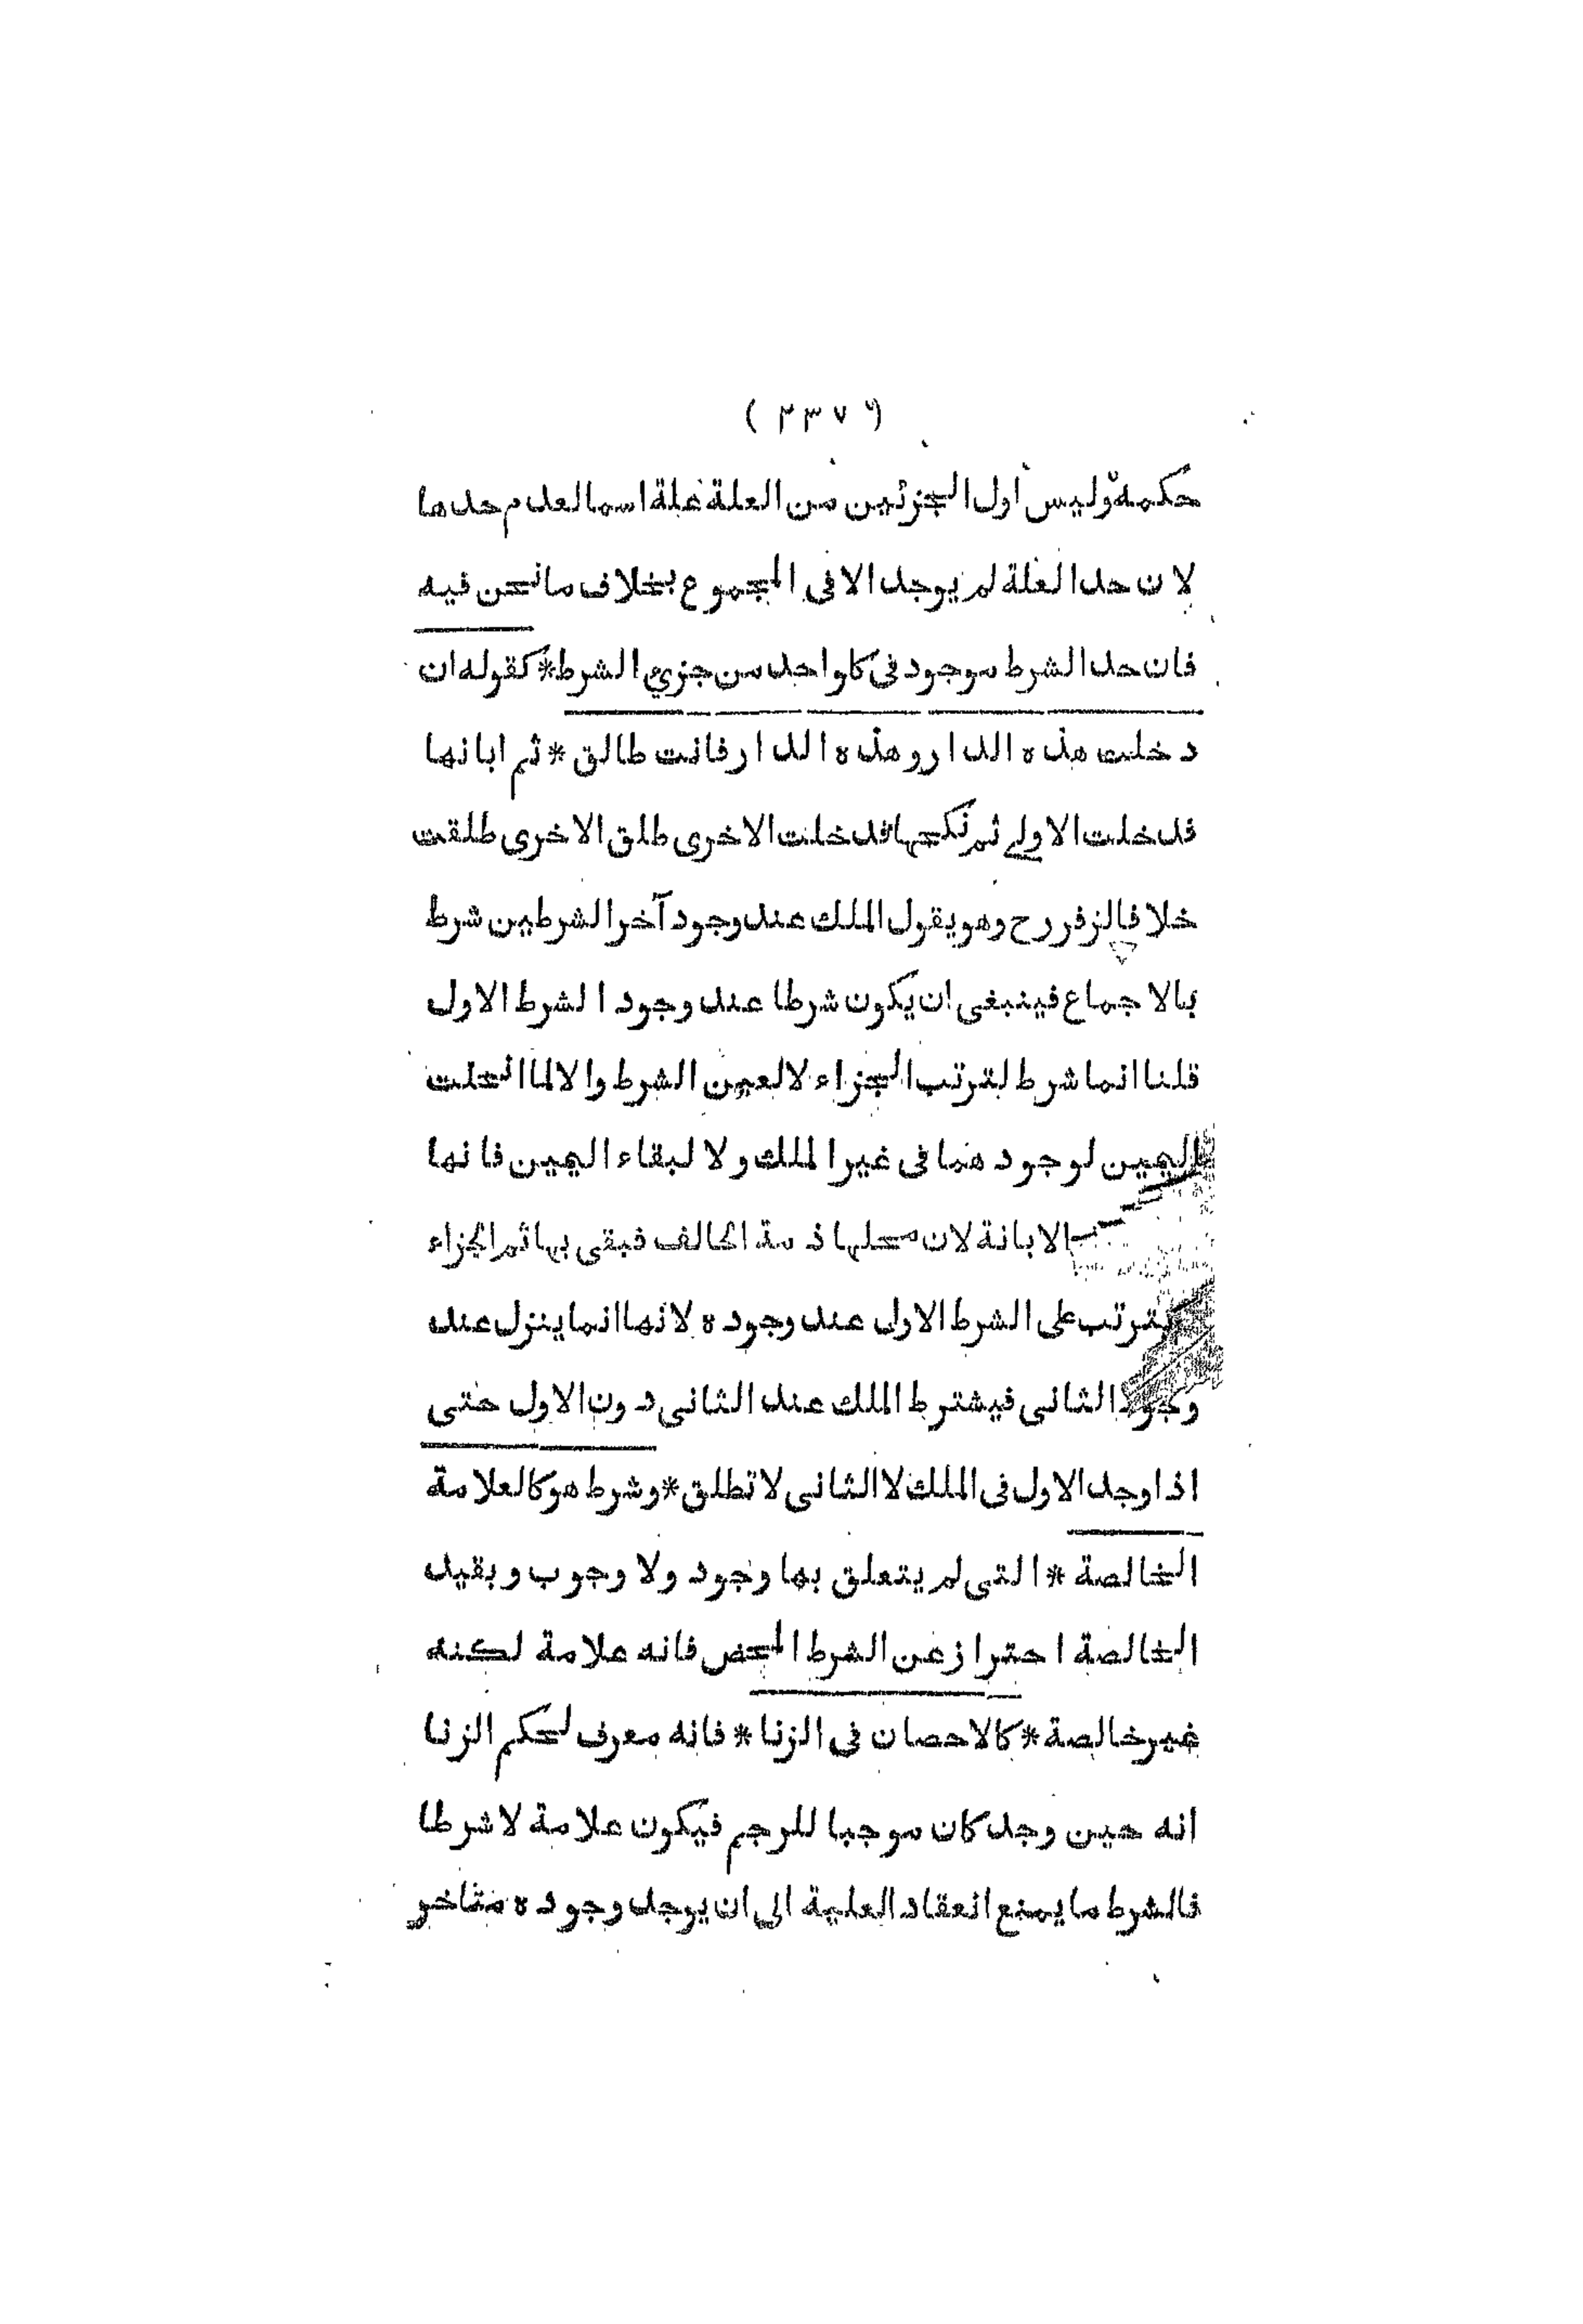 ( ٢٣٧٦ )
حكمه وليس اول الجزئين من العلة علة اسما لعدم حدها
لان حد العلة لم يوجد الا فى المجموع بخلاف ما نحن فيه
فان حد الشرط موجود فى كل واحد من جزئي الشرط * كقوله ان
دخلت هذه الدار وهذه الدار فانت طالق * ثم ابانها
فدخلت الاولے ثم نكحها فدخلت الاخرى طلق الاخرى طلقت
خلافا لزفر رح وهو يقول الملك عند وجود آخر الشرطين شرط
بالاجماع فينبغى ان يكون شرطا عند وجود الشرط الاول
قلنا انما شرط لترتب الجزاء لا لعين الشرط والا لما انحلت
اليمين لوجودهما فى غير الملك ولا لبقاء اليمين فانها
الابانة لان محلها ذمة الحالف فبقى بها ثم الجزاء
يترتب على الشرط الاول عند وجوده لانها انما ينزل عند
وجود الثانى فيشترط الملك عند الثانى دون الاول حتى
اذا وجد الاول فى الملك لا الثانى لا تطلق * وشرط هو كالعلامة
الخالصة * التى لم يتعلق بها وجود ولا وجوب وبقيد
الخالصة احتراز عن الشرط المحض فانه علامة لكنه
غير خالصة * كالاحصان فى الزنا * فانه معرف لحكم الزنا
انه حين وجد كان موجبا للرجم فيكون علامة لا شرطا
فالشرط ما يمنع انعقاد العلية الى ان يوجد وجوده متاخر